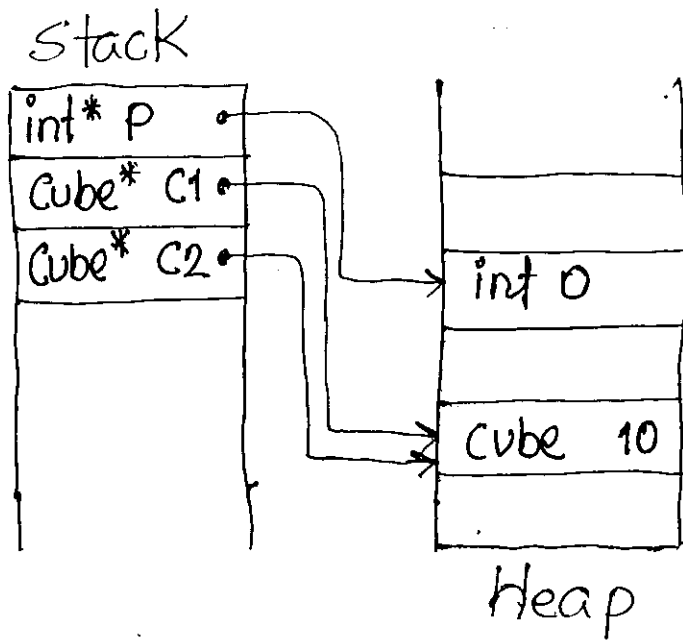 Stack
int* P
Cube* C1
Cube* C2
int 0
Cube 10
Heap